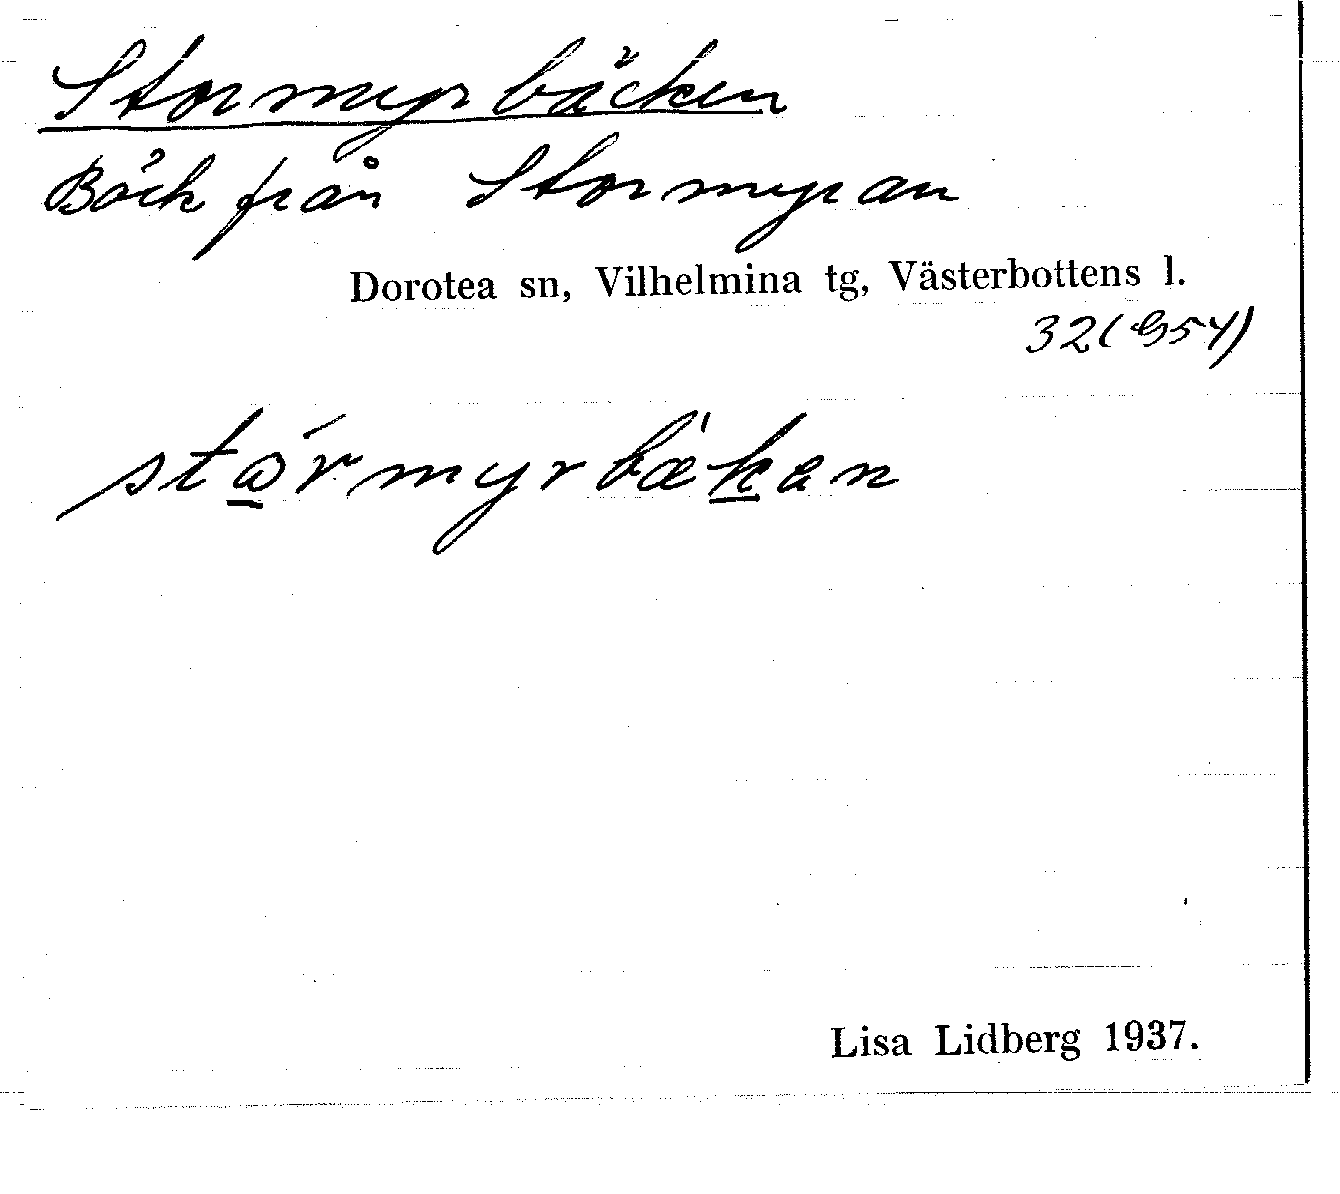 Stormyrbäcken
Bäck från Stormyran
Dorotea sn, Vilhelmina tg, Västerbottens l.
32(G54)
stɷ̲́rmyrbæ̀k̲en
Lisa Lidberg 1937.